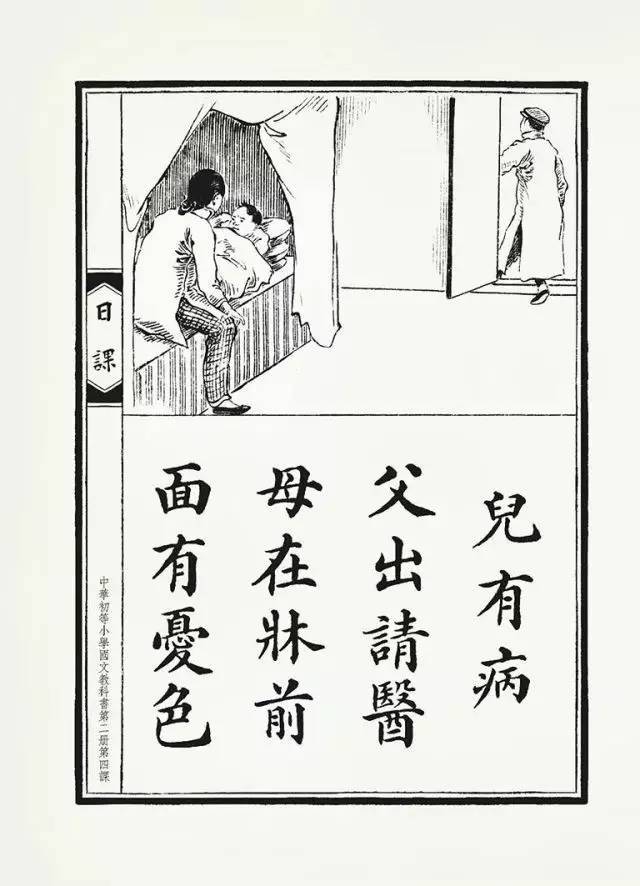 兒有病
父出請醫
母在牀前
面有憂色
日課
中華初等小學國文教科書第二册第四課